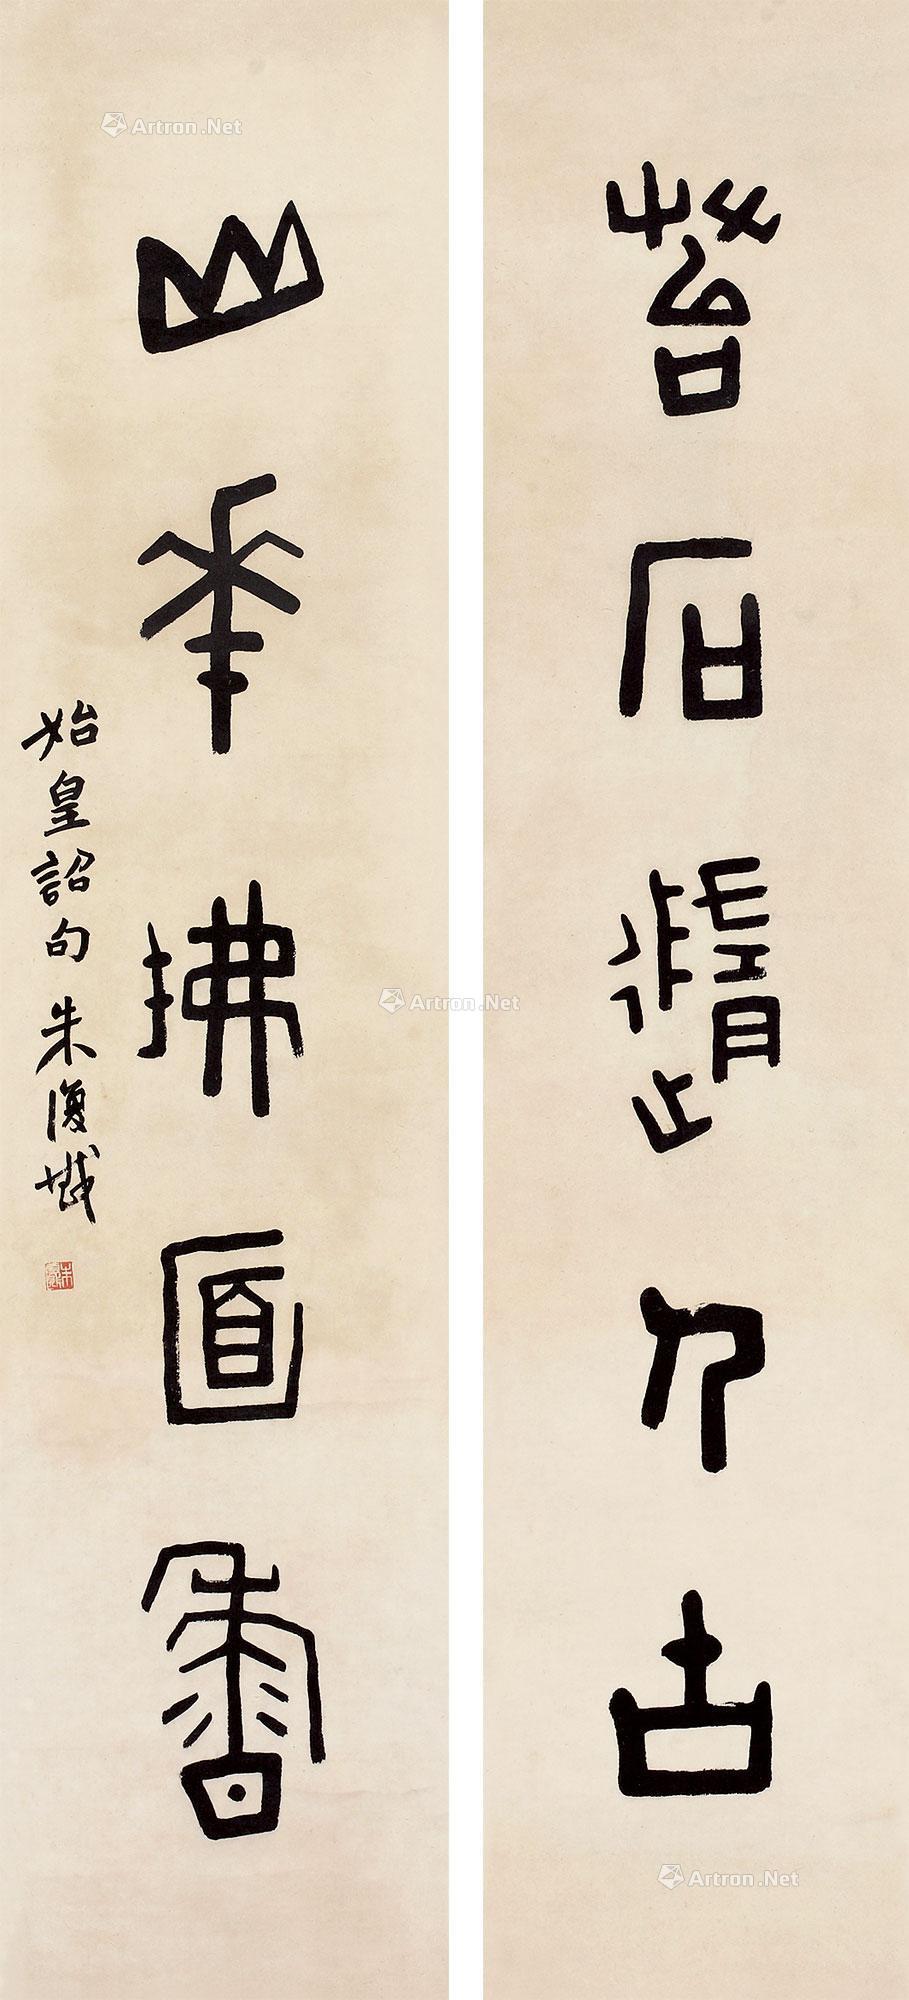 苔石隨人古
山華拂面香
始皇詔句 朱復戡
Artron.Net
Artron.Net
Artron.Net